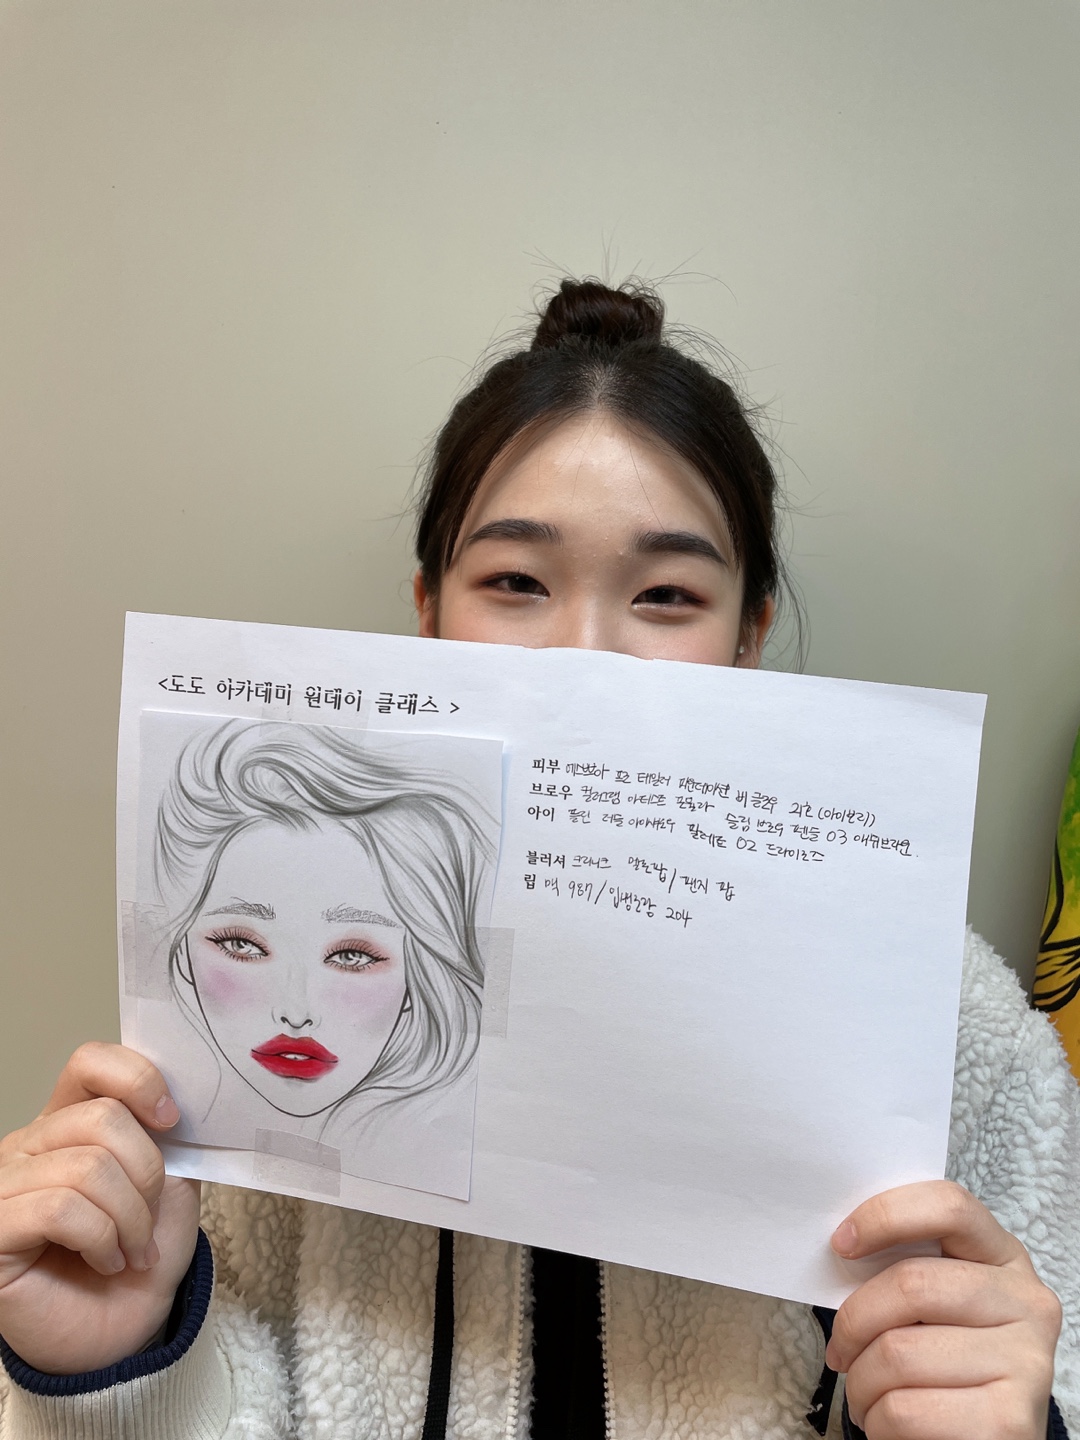 <도도 아카데미 원데이 클래스 >
피부 에스쁘아 프로 테일러 파운데이션 비 글로우 21호 (아이보리)
브로우 컬러그램 아티스트 포뮬라 슬림 브로우 펜슬 03 애쉬브라운.
아이 롤린 리틀 아이섀도우 팔레트 02 드라이로즈
블러셔 크리니크 멜론팝 / 팬지 팝
립 맥 987 / 입생로랑 204